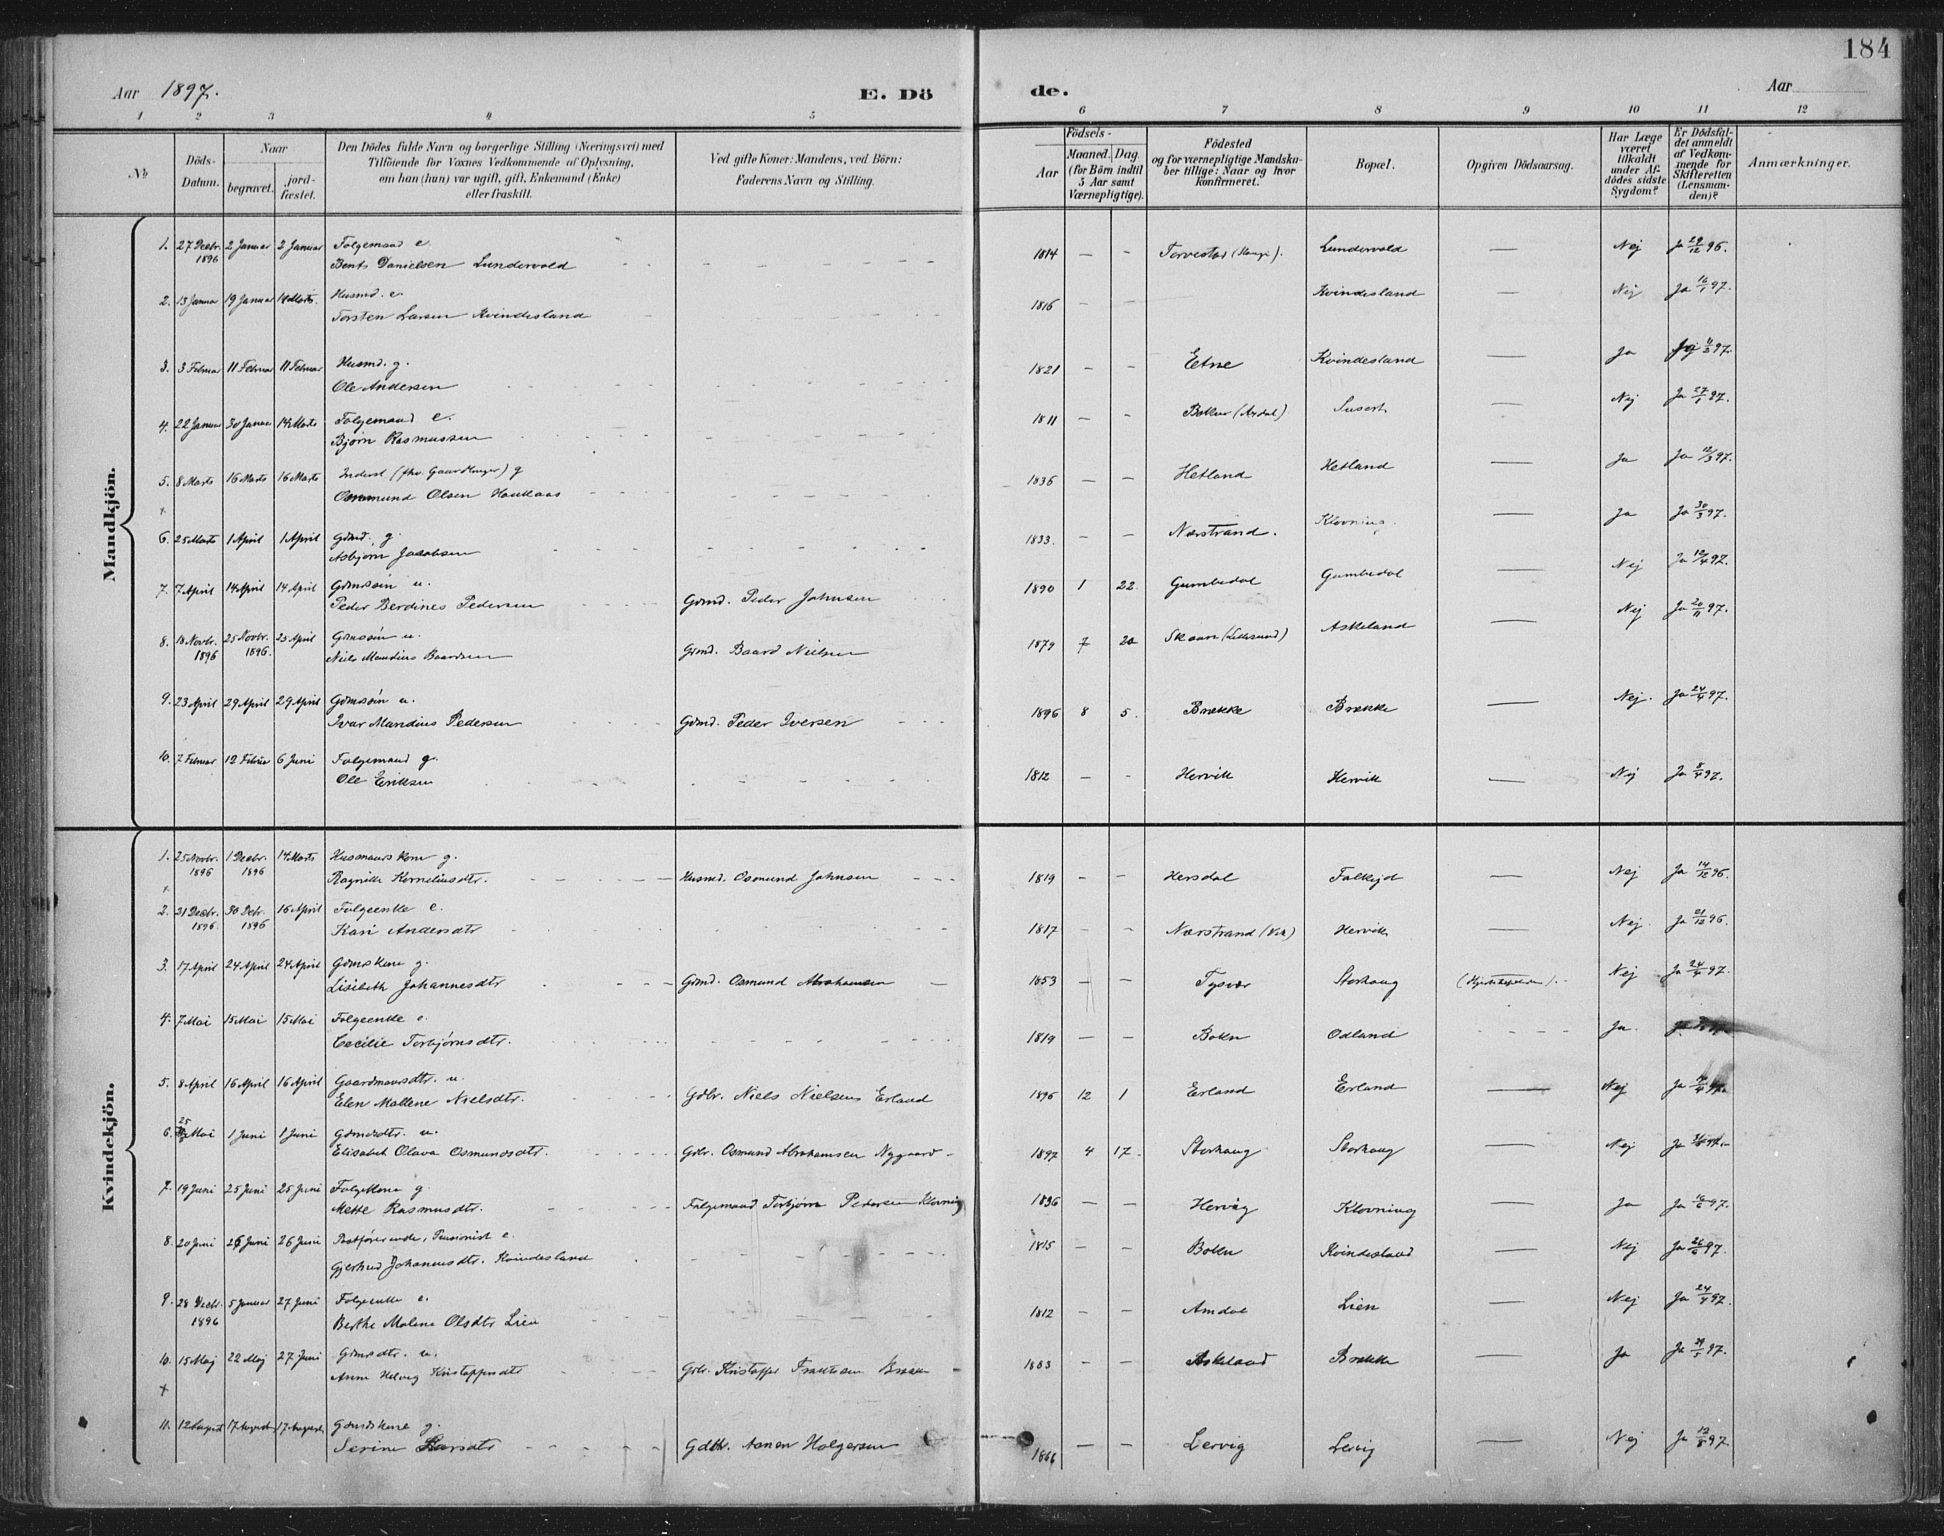 184
Aar 1897.
E. Döde.
Aar
1 2 3 4 5 6 7 8 9 10 11 12
No
Döds-Datum.
Naar
begravet.
jordfæstet.
Den Dödes fulde Navn og borgerlige Stilling (Næringsvei) med
Tilföiende for Voxnes Vedkommende af Oplysning,
om han (hun) var ugift, gift, Enkemand (Enke)
eller fraskilt.
Ved gifte Koner: Mandens, ved Börn:
Faderens Navn og Stilling.
Födsels-
Aar
Maaned. Dag.
(for Börn indtil
5 Aar samt
Værnepligtige).
Födested
og for værnepligtige Mandska-
ber tillige: Naar og hvor
konfirmeret.
Bopæl.
Opgiven Dödsaarsag.
Har Læge
været
tilkaldt
under Af-
dödes sidste
Sygdom?
Er Dödsfal-
det anmeldt
af Vedkom-
mende for
Skifteretten
(Lensman-
den)?
Anmærkninger.
Mandkjön.
1. 27 Decbr. 2 Januar 2 Januar Folgemand e. 1814 — — Torvestad Lundervold — Nej Ja 29/12 96.
1896 Bent Danielsen Lundervold
2. 13 Januar 19 Januar 14 Marts Husmd. e. 1816 — — Kvindesland — Nej Ja 16/1 97.
Torsten Larsen Kvindesland
3. 3 Februar 11 Februar 11 Februar Husmd. g. 1821 — — Etne Kvindesland — Ja 97.
Ole Andersen
4. 22 Januar 30 Januar 14 Marts Folgemand e. 1811 — — Bokn Susort — Nej Ja 27/1 97.
Bjørn Rasmussen
5. 8 Marts 16 Marts 16 Marts Inderst g 1836 — — Hetland Hetland — Ja Ja 12/3 97.
Osmund Olsen Haukaas
+
6. 25 Marts 1 April 1 April Gdmd. g. 1833. — — Nærstrand. Klovning — Ja Ja 30/3 97.
Asbjørn Jacobsen
7. 7 April 14 April 14 April Gdmssøn u. 1890 1 22 Gumbedal Gumbedal — Nej Ja 12/4 97.
Peder Berdines Pedersen Grmd. Peder Johnsen
8. 18 Novbr. 25 Novbr. 25 April Gdmssøn u. 1879 7 20 Skaare Askeland — Nej Ja 20/11 97.
1896 1896. Niels Mandius Baardsen Grmd. Baard Nielsen
9. 23 April 29 April 29 April Gdmssøn u. 1896 8 5. Brekke Brekke — Nej. Ja 24/4 97.
Ivar Mandius Pedersen Grmd. Peder Iversen
10. 7 Februar 12 Februar 6 Juni Folgemand g. 1812 — — Hervik Hervik — Nej Ja 8/4 97.
Ole Eriksen
Kvindekjön.
1. 25 Novbr. 1 Decbr. 14 Marts Husmanskone g. 1819 — — Hersdal Falkejd — Nej Ja 14/12 96.
1896 1896 Ragnille Korneliusdtr. Husmd. Osmund Johnsen
+
2. 21 Decbr. 30 Decbr. 16 April Folgeenke e. 1817 — — Nærstrand Hervik — Nej. Ja 21/12 96.
1896. 1896 Kari Andersdtr
3. 17 April 24 April 24 April Gdmskone g. 1853 — — Tysvær Storhaug Nej Ja 24/4 97.
Lisibeth Johannesdtr Grmd. Osmund Abrahamsen
4. 7 Mai 15 Mai 15 Mai Folgeenke e. 1819 — — Bokn Odland Ja.
Cecilie Torbjørnsdtr.
5. 8 April 16 April 16 April Gaardmansdtr. u. 1896 12 1 Erland Erland — Nej Ja
Elen Mallene Nielsdtr. Gdbr. Niels Nielsens Erland
6. 25 Mai 1 Juni 1 Juni Gdmsdtr. u. 1897 4 17. Storhaug Storhaug — Nej Ja
Elisabet Olava Osmundsdtr. Gdbr. Osmund Abrahamsen Nygaard
7. 19 Juni 25 Juni 25 Juni Folgekone g 1836 — — Hervig Klovning — Ja Ja 16/6 97.
Mette Rasmusdtr. Folgemand Torbjørn Pedersen Klovning
8. 20 Juni 26 Juni 26 Juni Postførerenke, Pensionist e. 1815 — — Bokn Kvindesland — Nej Ja 26/6 97.
Gjertrud Johannesdtr. Kvindesland
9. 28 Decbr. 5 Januar 27 Juni Folgeenke e. 1812 — — Amdal Lien — Nej Ja 24/4 97.
1896 Berthe Malene Olsdtr Lien
10. 15 Maj 22 Maj 27 Juni Gdmsdtr. u. 1883 — — Askeland Brekke — Ja Ja 97.
Anne Helvig Kristoffersdtr Gdbr. Kristoffer
+
11. 12 August 17 August 17 August Gdmdskone g. 1866 — — Lervig Lervig — Nej Ja 19/8 97.
Serine Larsdtr Gdbr. Aanen Holgersen